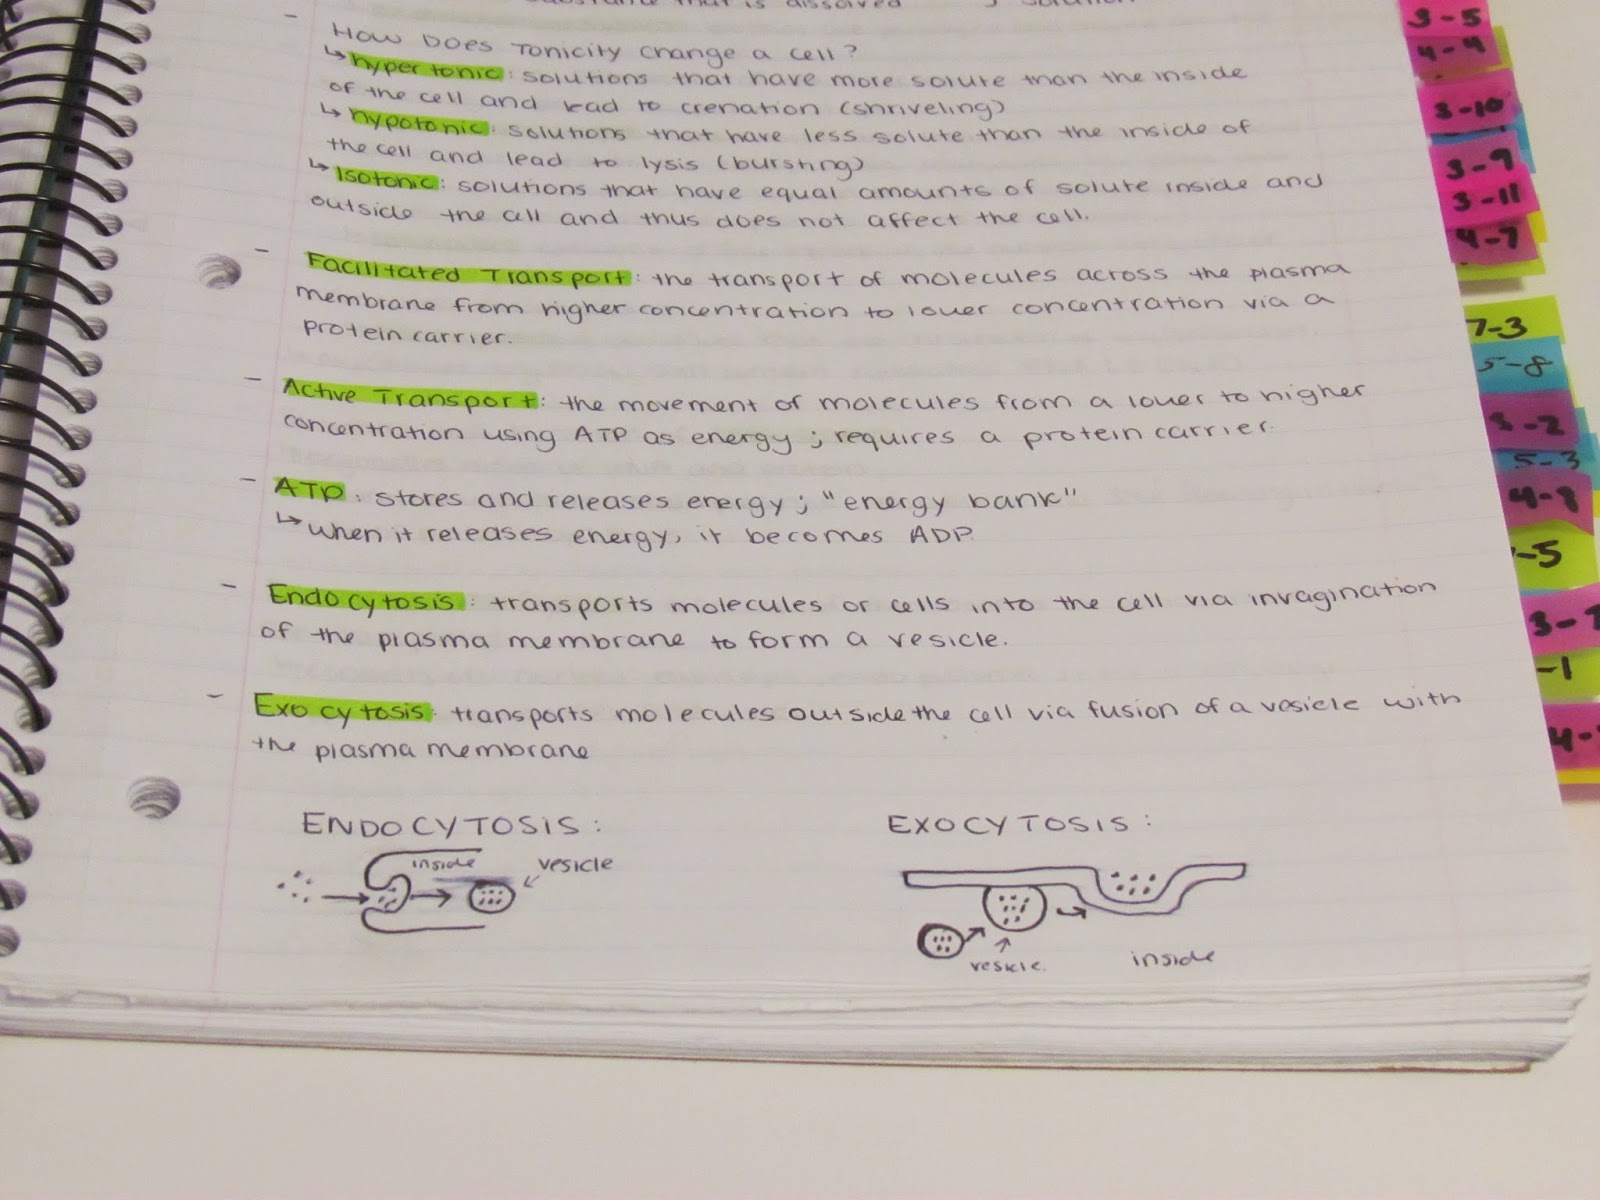 substance that is dissolved solution
- How Does Tonicity change a cell?
↳ hypertonic: solutions that have more solute than the inside
of the cell and lead to crenation (shriveling)
↳ hypotonic: solutions that have less solute than the inside of
the cell and lead to lysis (bursting)
↳ Isotonic: solutions that have equal amounts of solute inside and
outside the cell and thus does not affect the cell.
- Facilitated Transport: the transport of molecules across the plasma
membrane from higher concentration to lower concentration via a
protein carrier.
- Active Transport: the movement of molecules from a lower to higher
concentration using ATP as energy; requires a protein carrier.
- ATP: stores and releases energy; "energy bank"
↳ when it releases energy, it becomes ADP.
- Endocytosis: transports molecules or cells into the cell via invagination
of the plasma membrane to form a vesicle.
- Exocytosis: transports molecules outside the cell via fusion of a vesicle with
the plasma membrane
ENDOCYTOSIS:
inside
vesicle
EXOCYTOSIS:
vesicle.
inside
3-5
4-4
3-10
3-9
3-11
4-7
7-3
5-8
3-2
5-3
4-8
-5
3-7
-1
4-